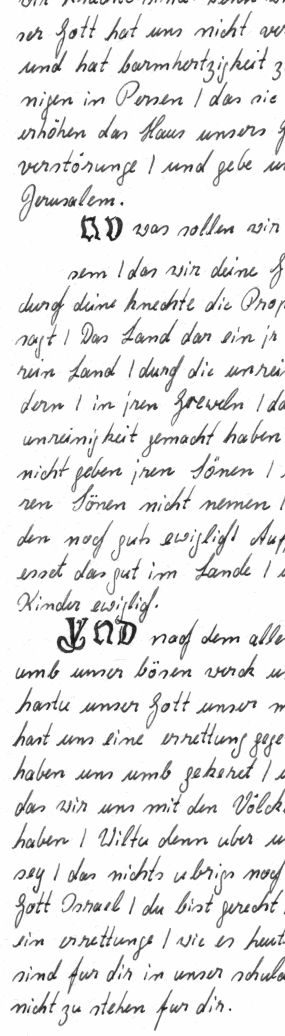 ser Gott hat uns nicht ver
und hat barmhertzigkeit z
nigen in Persen / das sie
erhöhen das Haus unsers G
verstörunge / und gebe un
Jerusalem.
NV was sollen wir
sem / das wir deine G
durch deine knechte die Prop
sagt / Das Land dar ein jr
rein Land / durch die unrei
dern / in jren Greweln / da
unreinigkeit gemacht haben
nicht geben jren Sönen /
ren Sönen nicht nemen /
den noch guts ewiglich Auff
esset das gut im Lande / u
Kinder ewiglich.
VND nach dem alle
umb unser bösen werck u
hastu unser Gott unser m
hast uns eine errettung gege
haben uns umb gekeret / u
das wir uns mit den Völck
haben / Wiltu denn uber u
sey / das nichts ubrigs noch
Gott Israel / du bist gerecht
ein errettunge / wie es heut
sind fur dir in unser schuld
nicht zu stehen fur dir.